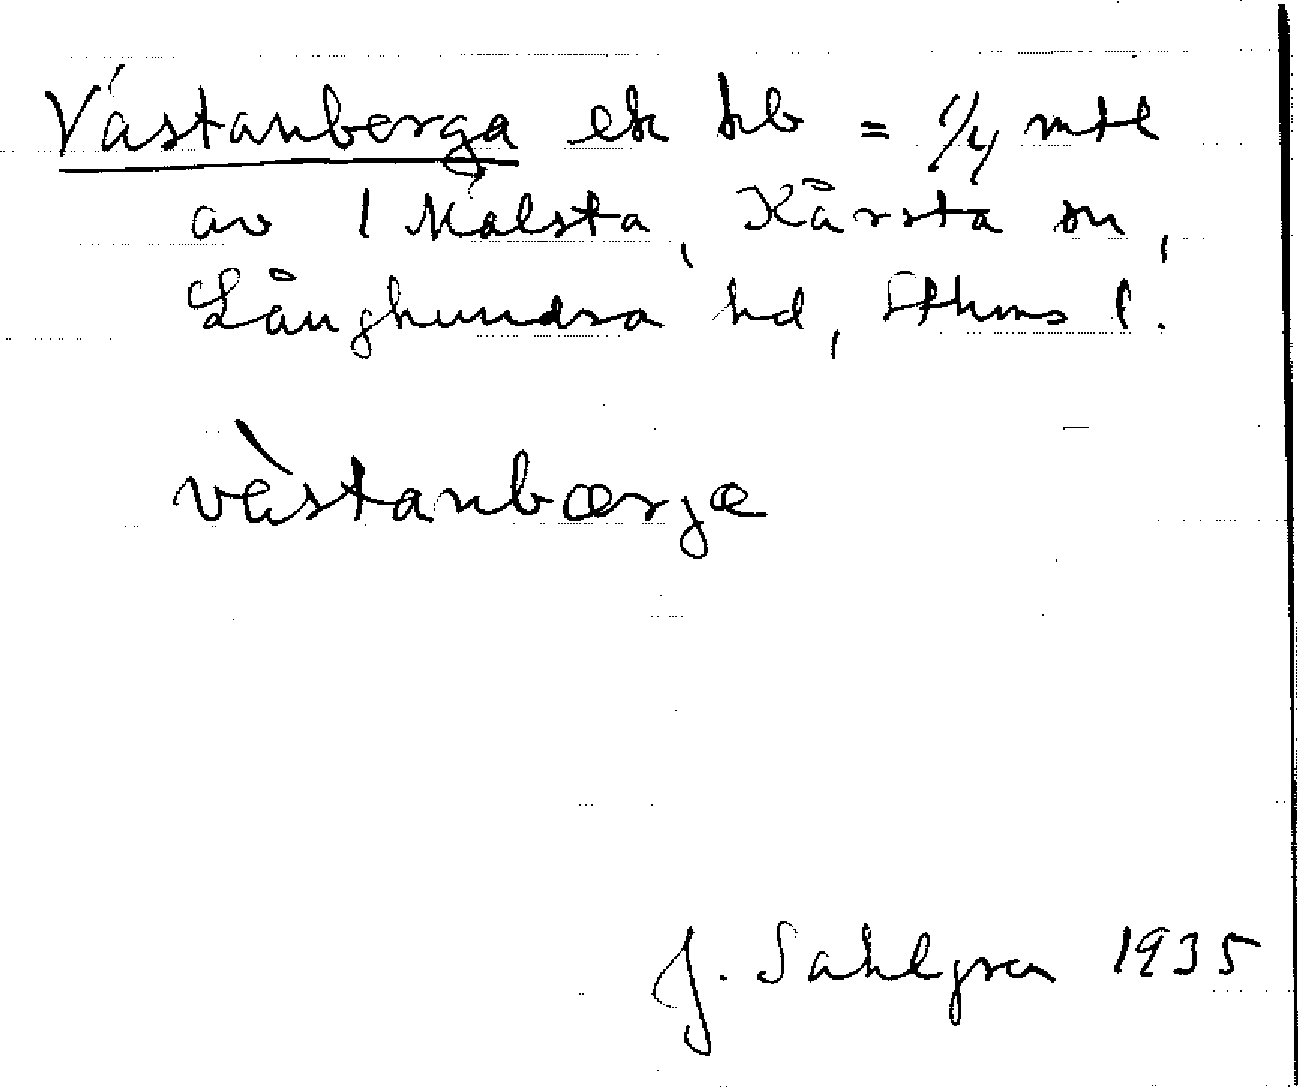 Västanberga ek hb = 1/4 mtl
av 1 Målsta, Kårsta sn,
Långhundra hd, Sthms l.
vèstanbærjæ
J. Sahlgren 1935